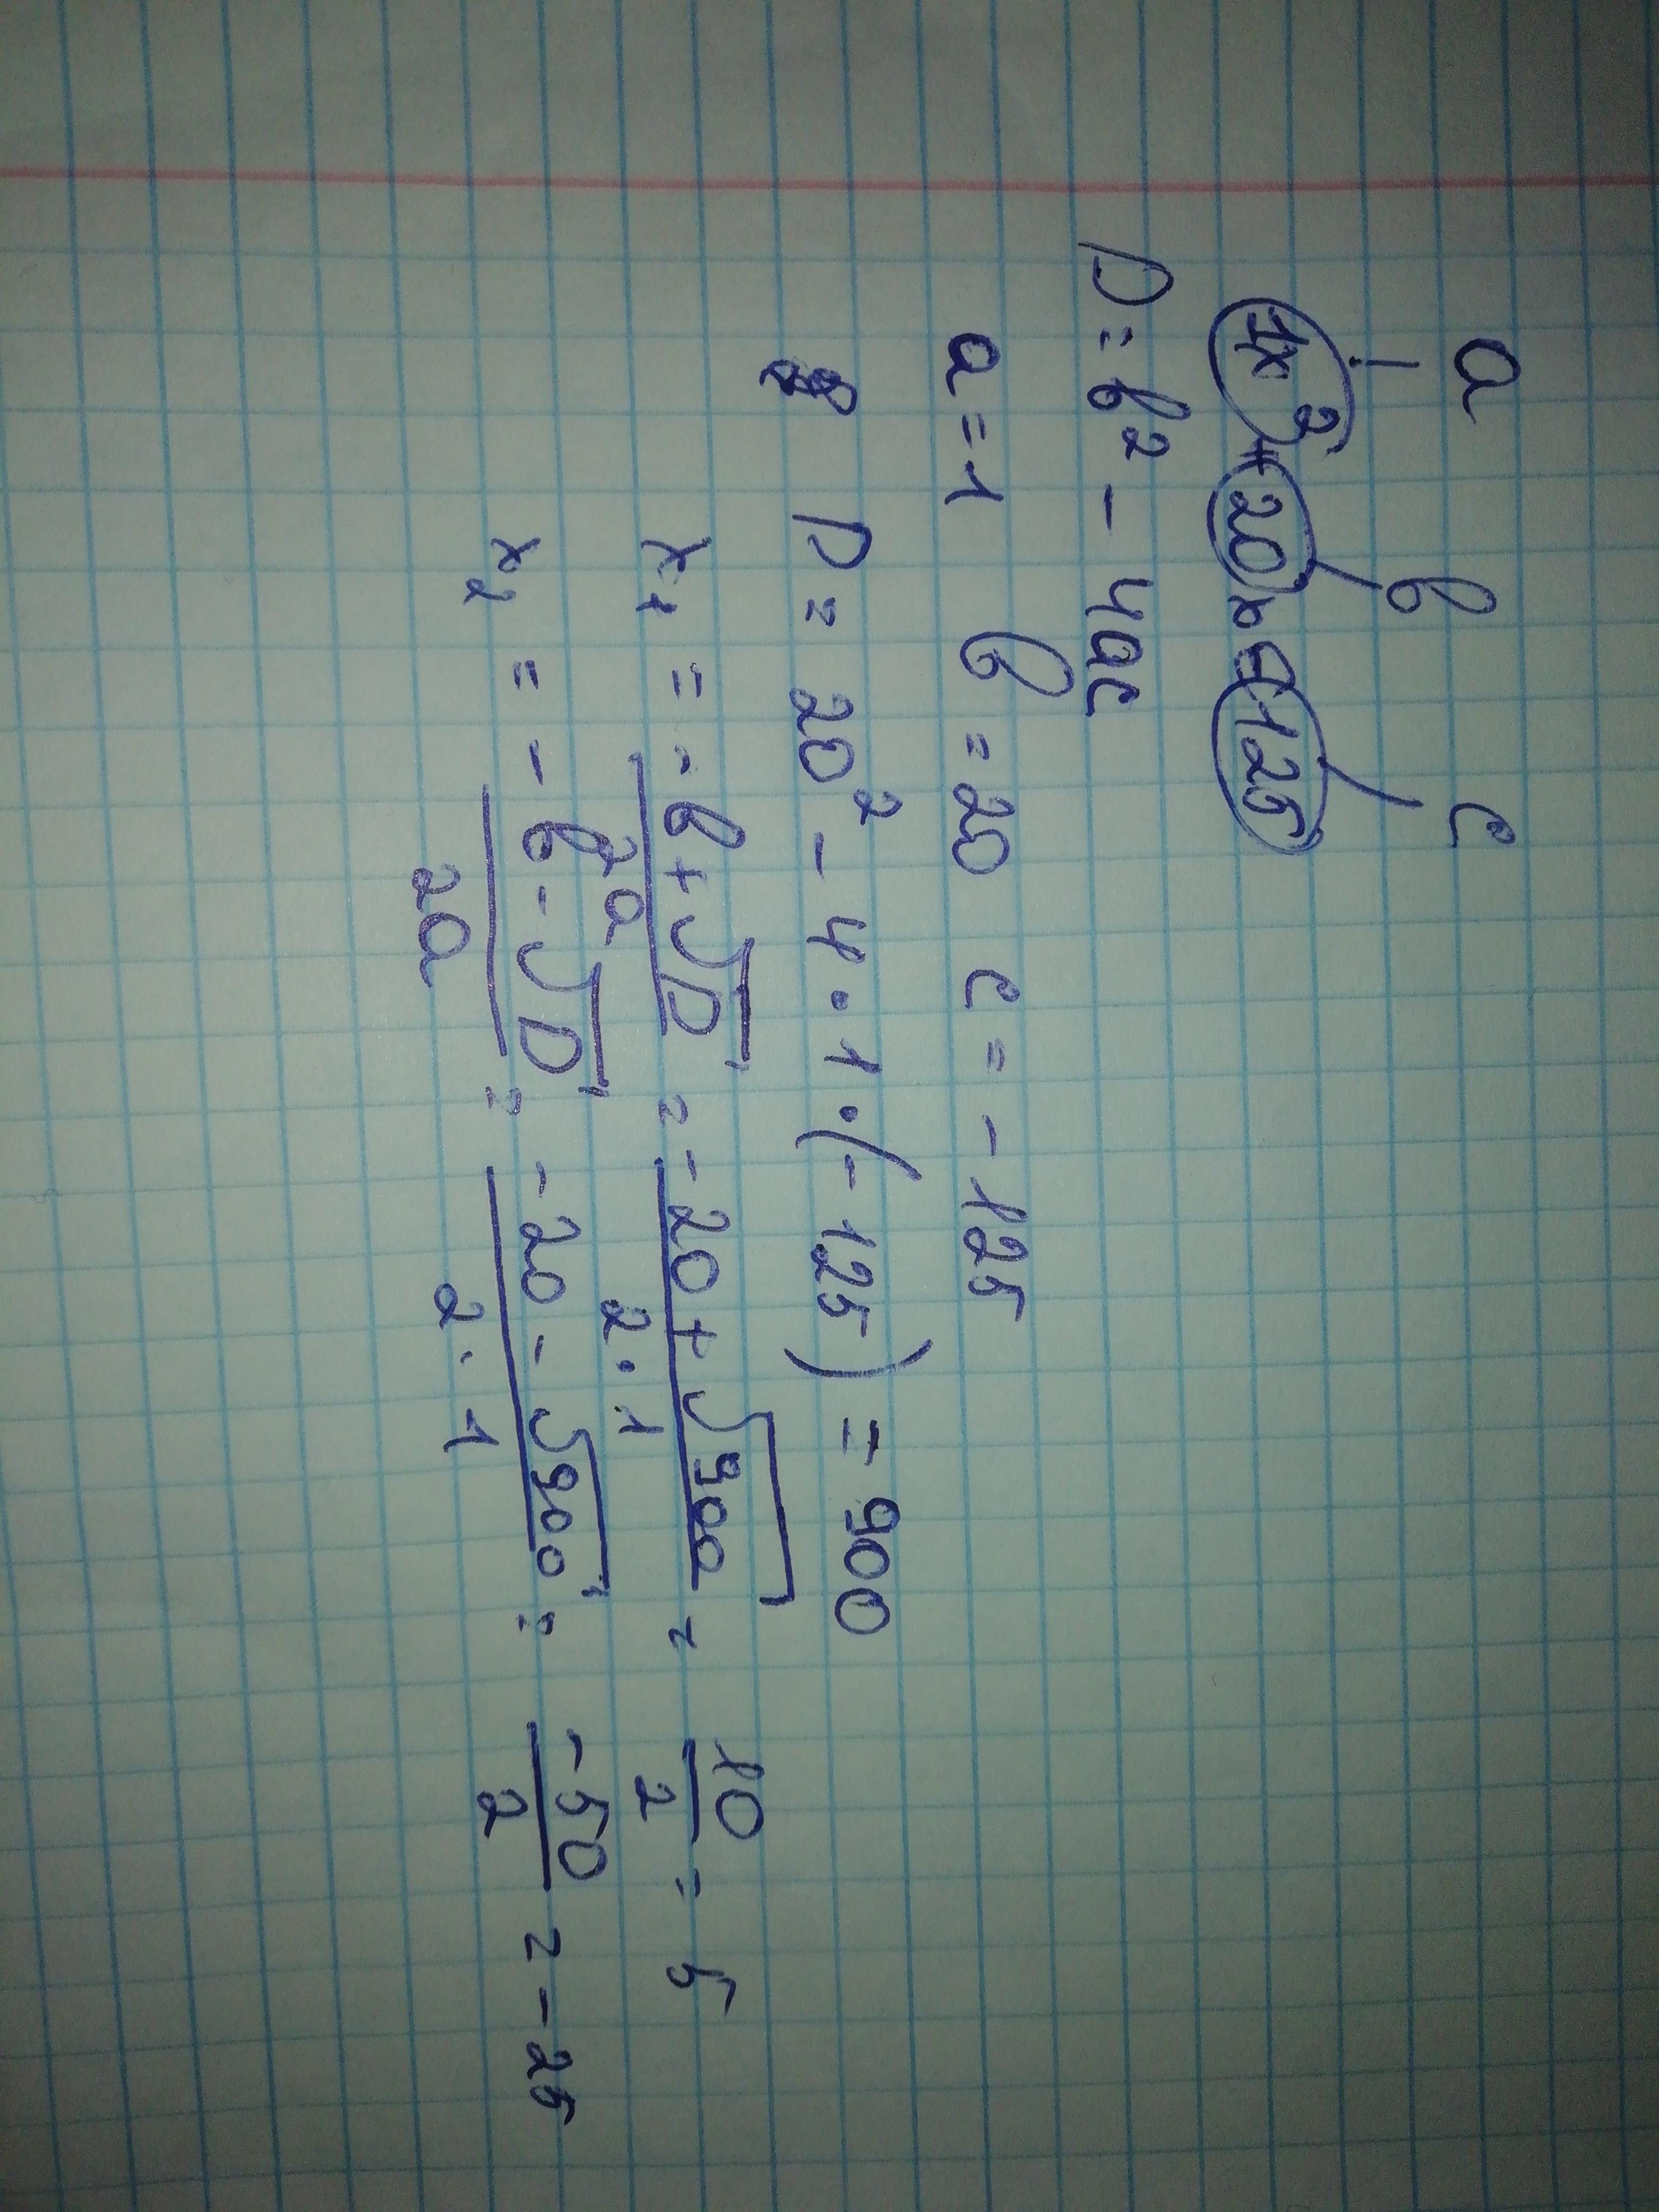 a b c
1x² + 20x - 125
D = b² - 4ac
a = 1 b = 20 c = -125
D = 20² - 4 · 1 · (-125) = 900
x₁ = -b + √D / 2a = -20 + √900 / 2 · 1 = 10 / 2 = 5
x₂ = -b - √D / 2a = -20 - √900 / 2 · 1 = -50 / 2 = -25